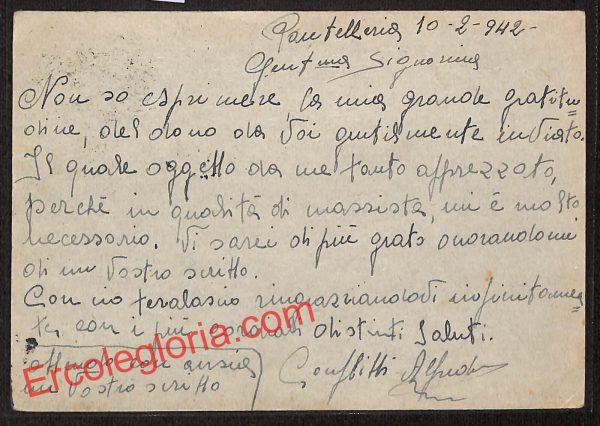 Pantelleria 10-2-942-
Gent.ma Signorina
Non so esprimere, la mia grande gratitu=
dine, del dono da Voi gentilmente inviato.
Il quale oggetto da me tanto apprezzato,
perchè in qualità di massista, mi è molto
necessario. Vi sarei di più grato onorandomi
di un Vostro scritto.
Con ciò tralascio ringraziandovi infinitamen=
te, con i più cordiali distinti saluti.
attendo con ansia
un Vostro scritto
Alfredo
Ercolegloria.com